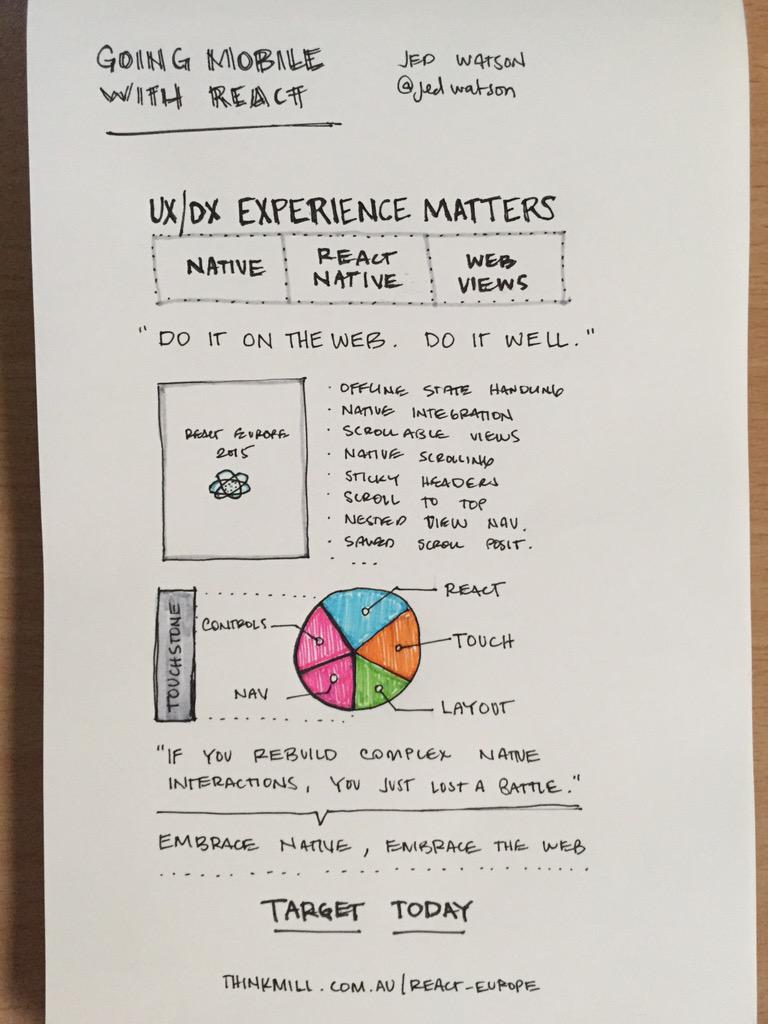 GOING MOBILE
WITH REACT
JED WATSON
@jedwatson
UX/DX EXPERIENCE MATTERS
NATIVE
REACT
NATIVE
WEB
VIEWS
"DO IT ON THE WEB. DO IT WELL."
REACT EUROPE
2015
· OFFLINE STATE HANDLING
· NATIVE INTEGRATION
· SCROLLABLE VIEWS
· NATIVE SCROLLING
· STICKY HEADERS
· SCROLL TO TOP
· NESTED VIEW NAV.
· SAVED SCROLL POSIT.
...
TOUCHSTONE
CONTROLS
NAV
REACT
TOUCH
LAYOUT
"IF YOU REBUILD COMPLEX NATIVE
INTERACTIONS, YOU JUST LOST A BATTLE."
EMBRACE NATIVE, EMBRACE THE WEB
TARGET TODAY
THINKMILL.COM.AU/REACT-EUROPE